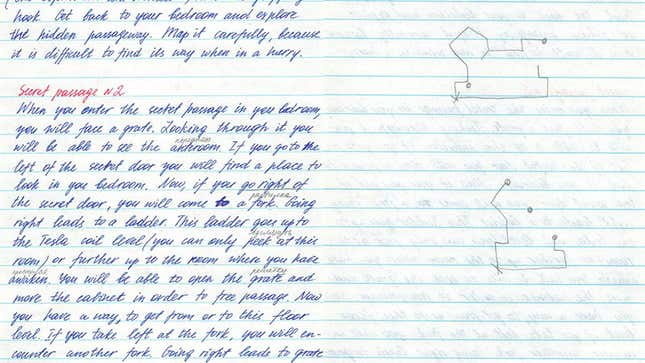 hook. Get back to your bedroom and explore
the hidden passageway. Map it carefully, because
it is difficult to find its way when in a herry.
Secret passage n2
When you enter the secret passage in you bedroom,
you will face a grate. Looking through it you
will be able to see the anteroom. If you go to the
left of the secret door you will find a place to
look in you bedroom. Now, if you go right of
the secret door, you will come to a fork. Going
right leads to a ladder. This ladder goes up to
the Tesla coil level (you can only peek at this
room) or further up to the room where you have
awaken. You will be able to open the grate and
move the cabinet in order to free passage. Now
you have a way, to get from or to this floor
level. If you take left at the fork, you will en-
counter another fork. Going right leads to grate